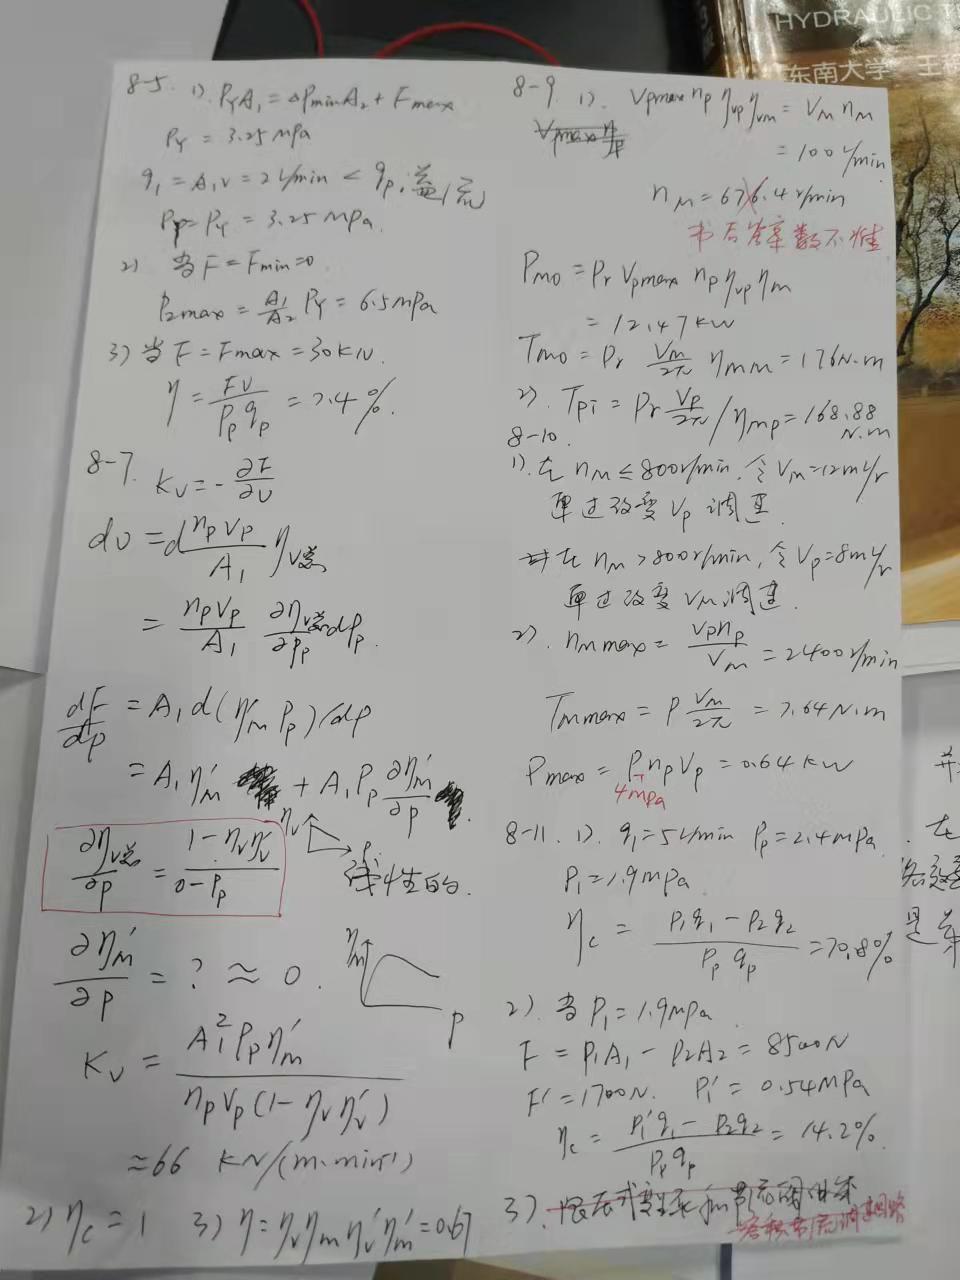 HYDRAULIC T
东南大学 王
8-5. 1). PγA₁ = ΔPminA₂ + Fmax
Pγ = 3.25 MPa
q₁ = A₁v = 2 L/min < qp, 溢流
Pp = Pγ = 3.25 MPa.
2) 当 F = Fmin = 0.
P₂max = A₁/A₂ Pγ = 6.5 MPa
3) 当 F = Fmax = 30KN.
η = Fv/Pp qp = 7.4%.
8-7. Kv = - ∂F/∂v
dv = d npVp/A₁ ηv总
= npVp/A₁ ∂ηv总/∂Pp dPp.
dF/dp = A₁ d(η'm Pp)/dp
= A₁η'm + A₁Pp ∂η'm/∂p.
∂ηv总/∂p = 1-ηvη'v/0-Pp
ηv
P
线性的.
∂η'm/∂p = ? ≈ 0.
ηm
P
Kv = A₁²Ppη'm/npVp(1-ηvη'v)
≈66 KN/(m.min⁻¹)
2) ηc = 1 3) η = ηvηmη'vη'm = 0.67
8-9. 1). Vpmax np ηvp ηvm = Vm nm
= 100 L/min
nm = 676.4 r/min
书后答案数不准
Pmo = Pr Vpmax np ηvp ηm
= 12.47 KW
Tmo = Pr Vm/2π ηmm = 176 N.m
2). Tpi = Pr Vp/2π / ηmp = 168.88 N.m
8-10.
1). 在 nm ≤ 800r/min, 令 Vm = 12ml/r
通过改变 Vp 调速.
在 nm > 800r/min, 令 Vp = 8ml/r
通过改变 Vm 调速.
2). nmmax = Vpnp/Vm = 2400 r/min
Tmmax = P Vm/2π = 7.64 N.m
Pmax = P np Vp = 0.64 KW
4MPa
8-11. 1). q₁ = 5 L/min Pp = 2.4 MPa.
P₁ = 1.9 MPa.
ηc = P₁q₁ - P₂q₂/Pp qp = 70.8%
2). 当 P₁ = 1.9 MPa.
F = P₁A₁ - P₂A₂ = 8500N
F' = 1700N. P₁' = 0.54 MPa
ηc = P₁'q₁ - P₂q₂/Pp qp = 14.2%.
3).
容积节流调速回路
在